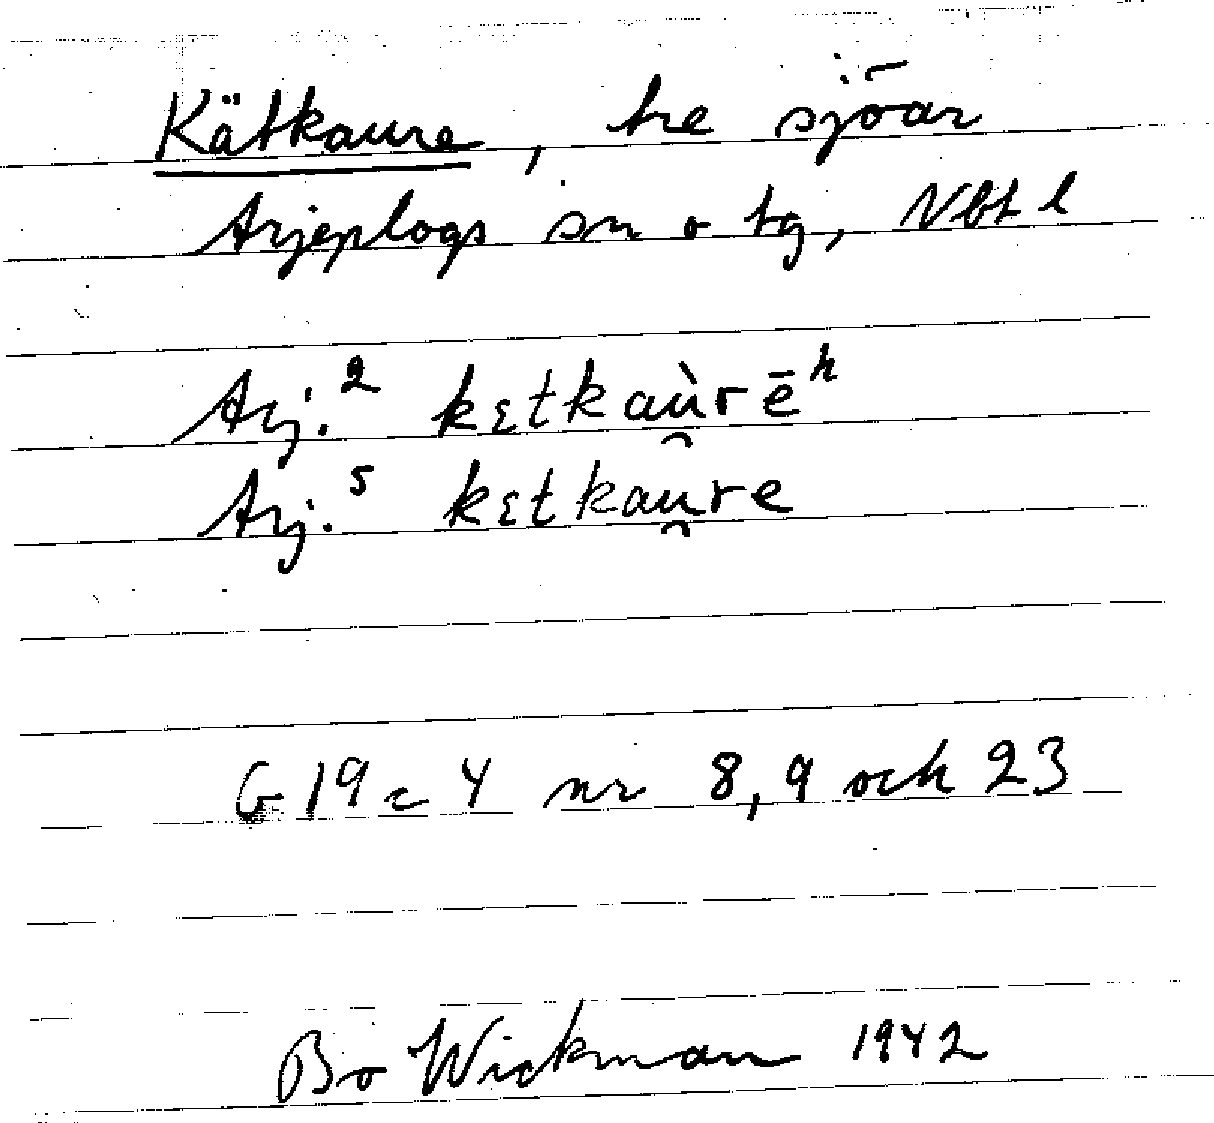 Kätkaure, tre sjöar
Arjeplogs sn o tg, Nbt l
Arj.² kɛtkaù̯rēʰ
Arj.⁵ kɛtkau̯re
G 19 c 4 nr 8, 9 och 23
Bo Wickman 1942